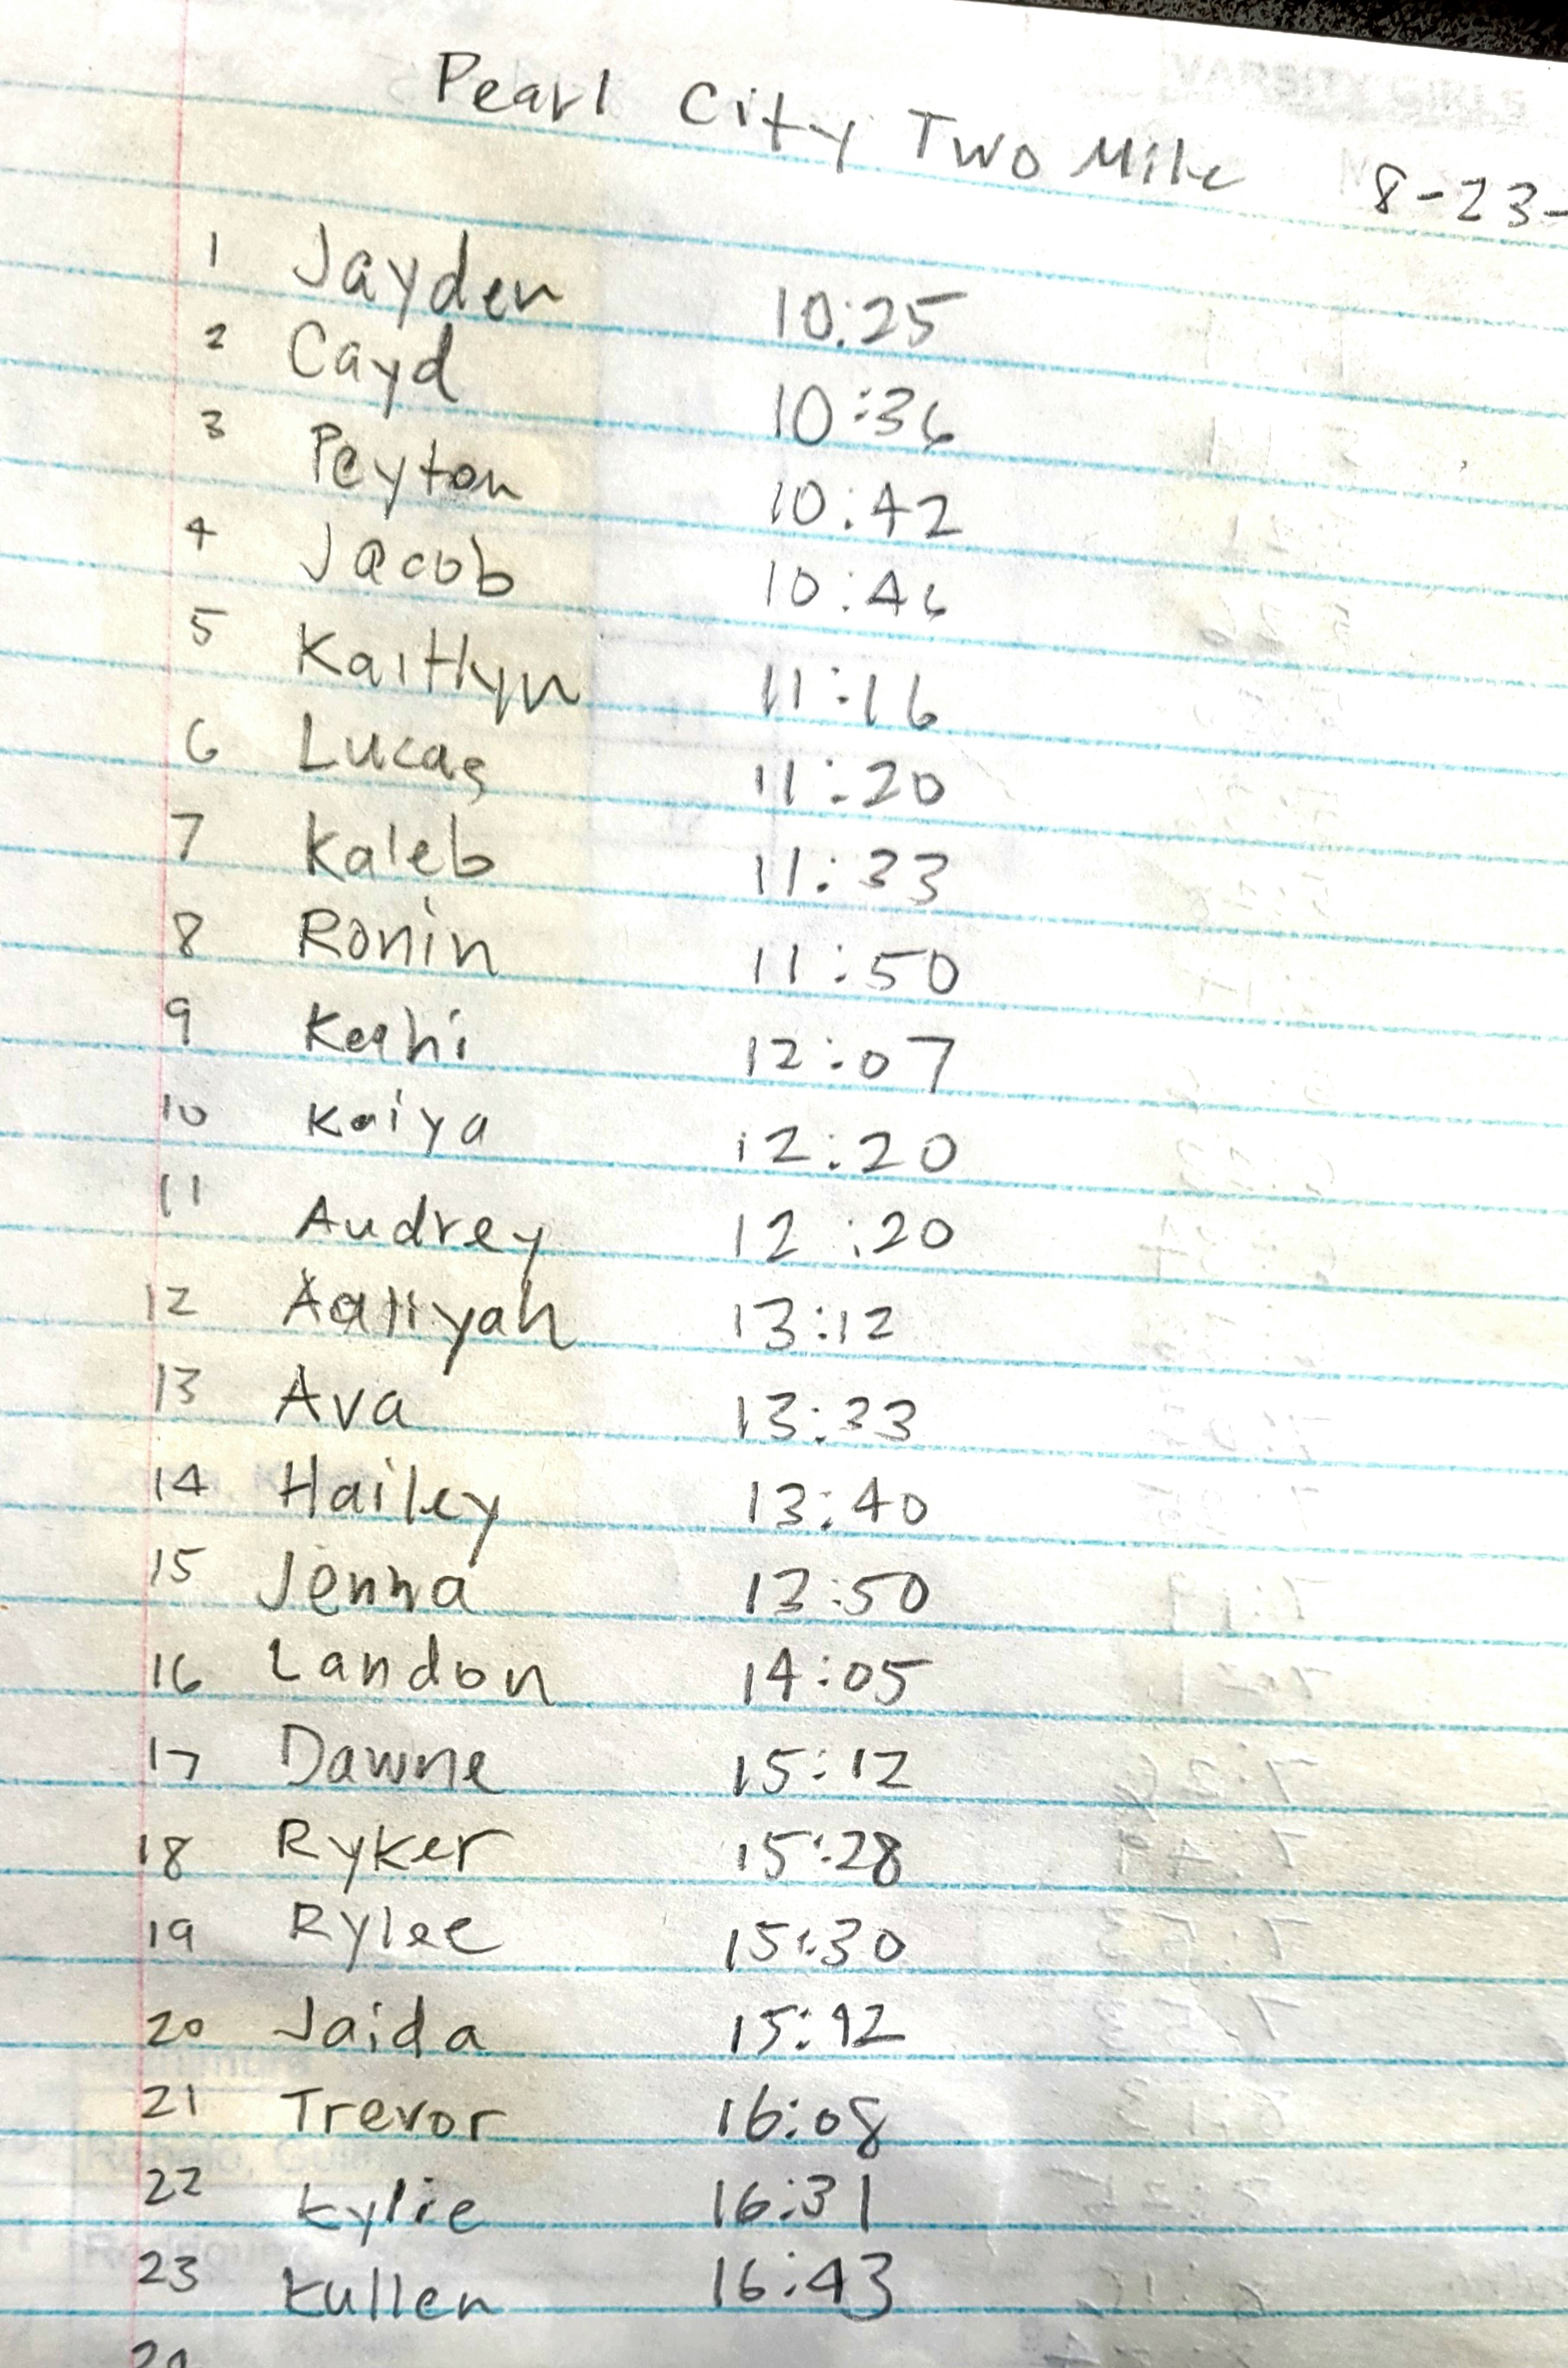 Pearl City Two Mile 8-23-
1 Jayden 10:25
2 Cayd 10:36
3 Peyton 10:42
4 Jacob 10:46
5 Kaitlyn 11:16
6 Lucas 11:20
7 Kaleb 11:33
8 Ronin 11:50
9 12:07
10 Kaiya 12:20
11 Audrey 12:20
12 Aaliyah 13:12
13 Ava 13:33
14 Hailey 13:40
15 Jenna 13:50
16 Landon 14:05
17 Dawne 15:12
18 Ryker 15:28
19 Rylee 15:30
20 Jaida 15:42
21 Trevor 16:08
22 Kylie 16:31
23 Kullen 16:43